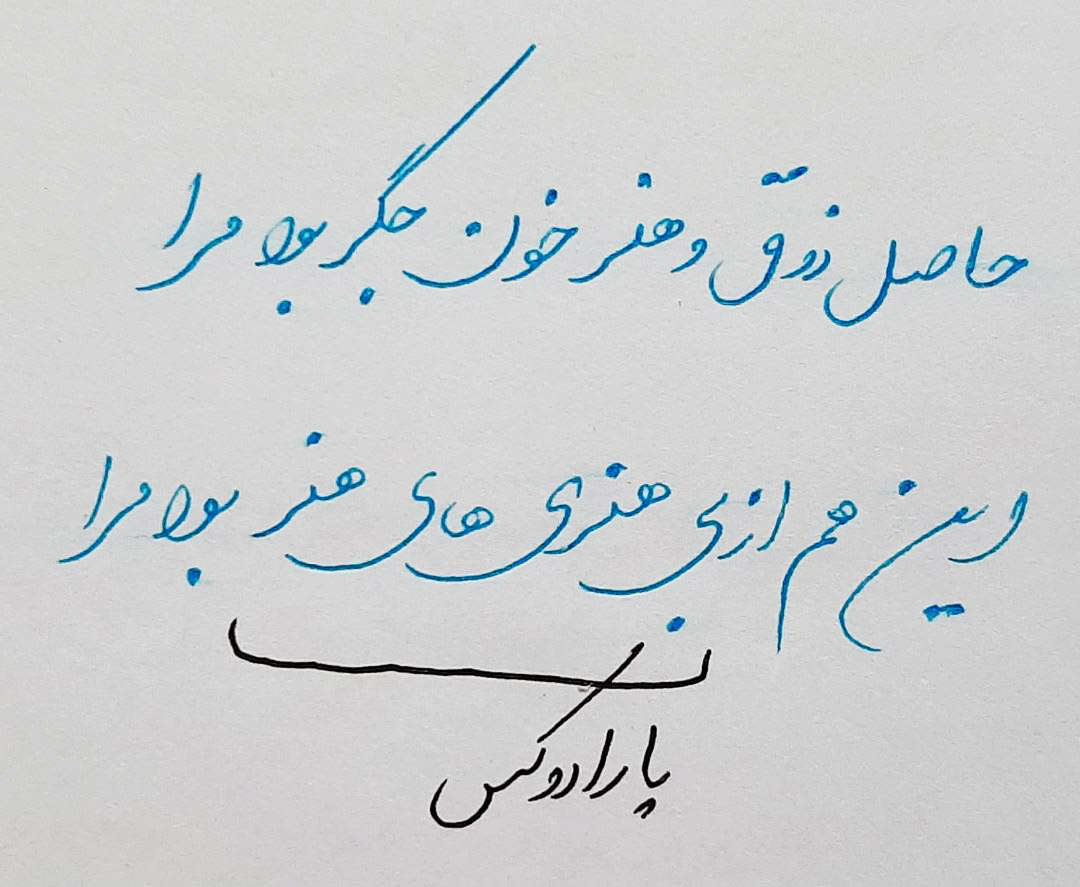 حاصل ذوق و هنر خون جگر بود مرا
این هم از بی هنری های هنر بود مرا
پارادوکس